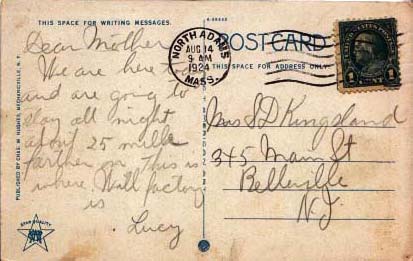 THIS SPACE FOR WRITING MESSAGES.
Dear Mother
We are here
and are going to
stay all night
about 25 miles
farther on This is
where Wall factory
is
Lucy
PUBLISHED BY CHAS. W. HUGHES, MECHANICVILLE, N. Y.
STAR QUALITY
NORTH ADAMS
AUG 14
9 AM
1924
MASS.
POST CARD
THIS SPACE FOR ADDRESS ONLY.
1 1
Mrs S D Kingsland
345 Main St
Belleville
N.J.